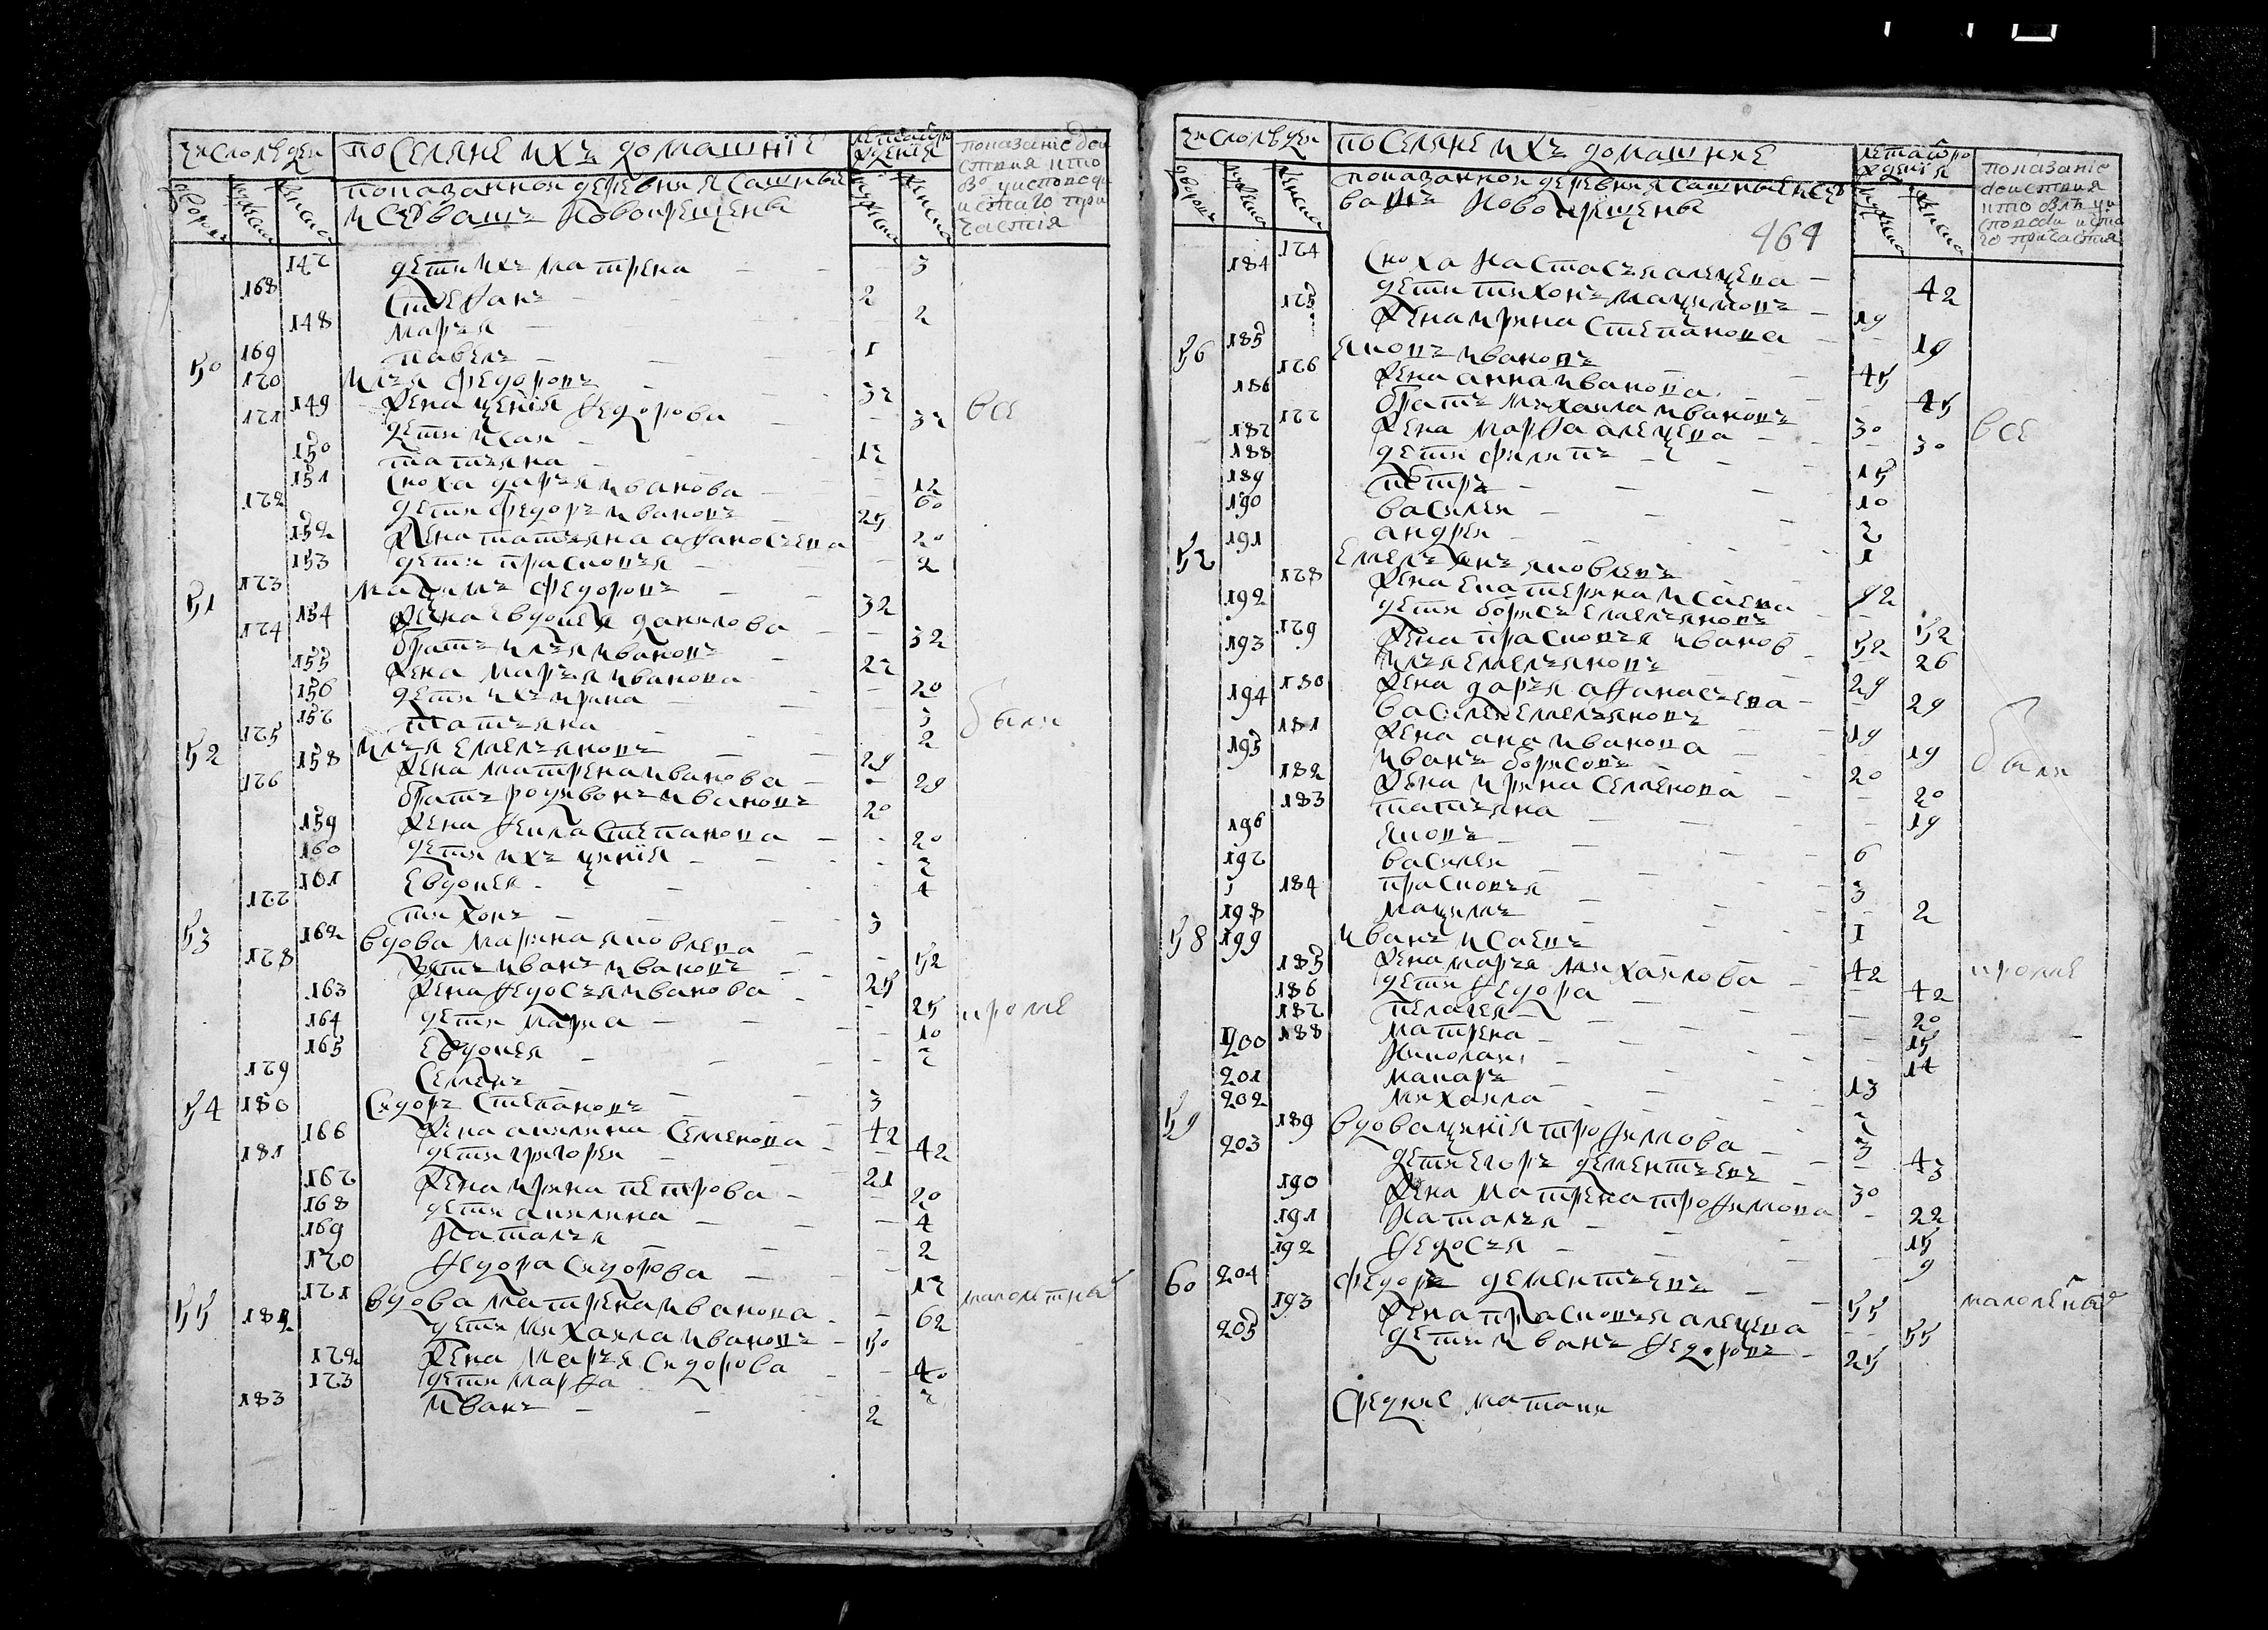 число людей поселяне ихъ домашнїе лета от рождения показанїе действия кто во исповеди и стаго причастїя
дворовъ мужеска женска показанной деревни ясашные мужеска женска
и чювашъ новокрещены
147 дети ихъ матрена - 3
168 степанъ - 2
148 марья - 2
169 павелъ - 1
50 170 илья федоровъ - 37 все
149 жена ксенїя федорова - 37
171 дети исай - 17
150 татьяна - 12
151 сноха дарья иванова - 60
172 дети федоръ ивановъ 25
152 жена татьяна афаносьева 20
153 дети прасковья - 2
51 173 махимъ федоровъ - 32
154 жена евдокея данилова - 32
174 братъ илья ивановъ - 27
155 жена марья иванова - 20
156 дети ихъ ирина - 3 были
157 татьяна 2
52 175 илья емельяновъ 29
158 жена матрена иванова - 29
176 братъ родивонъ ивановъ 20
159 жена фекла степанова - 20
160 дети ихъ ксинїя - 7
161 евдокея - 4
177 тихонъ - 3
53 162 вдова марина яковлева - 52
178 зять иванъ ивановъ - 25
163 жена федосья иванова - 25 кроме
164 дети марфа - 10
165 евдокея - 7
179 семенъ - 3
54 180 сидоръ степановъ - 42
166 жена акилина семенова - 42
181 дети григорей - 21
167 жена ирина петрова - 20
168 дети акилина - 4
169 наталья - 2
170 федора сидорова - 17
55 171 вдова матрена иванова - 62 малолетныхъ
182 дети михаила ивановъ - 50
172 жена марья сидорова - 40
173 дети марфа - 7
183 иванъ - 2
число людей поселяне ихъ домашние лета от рождения показанїе действия кто въ исповеди и стаго причастия
дворовъ мужеска женска показанной деревни ясашные и чю мужеска женска
вашъ новокрещены
464
174 сноха настасья алексева - 42
184 дети тихонъ макимовъ - 19
175 жена ирина степанова - 19
56 185 яковъ ивановъ 45
176 жена анна иванова - 45
186 братъ михаила ивановъ 30
177 жена марфа алексева - 30 все
187 дети филипъ - 15
188 петръ - 10
189 василей - 7
190 андрей - 1
57 191 емельянъ яковлевъ 52
178 жена екатерина исаева - 52
192 дети борисъ емельяновъ 52
179 жена прасковья иванов - 26
193 илья емельяновъ 29
180 жена дарья афанасьева - 29
194 василей емельяновъ 19
181 жена ана иванова - 19
195 иванъ борисовъ - 20 были
182 жена ирина семенова - 20
183 татьяна - 19
196 яковъ - 6
197 василей - 3
184 прасковья - 2
198 макимъ - 1
58 199 иванъ исаевъ 42
185 жена марья михаилова - 42 кроме
186 дети федора - 20
187 пелагея - 15
188 матрена - 14
200 николаи - 13
201 макаръ - 7
202 михаила - 3
59 189 вдова ксинїя трофимова - 43
203 дети егоръ дементьевъ - 30
190 жена матрена трофимова 22
191 наталья - 15
192 федосья - 9
60 204 федоръ дементьевъ - 55 малолетныхъ
193 жена прасковья алексева - 55
205 дети иванъ федоровъ - 25
средние маташи